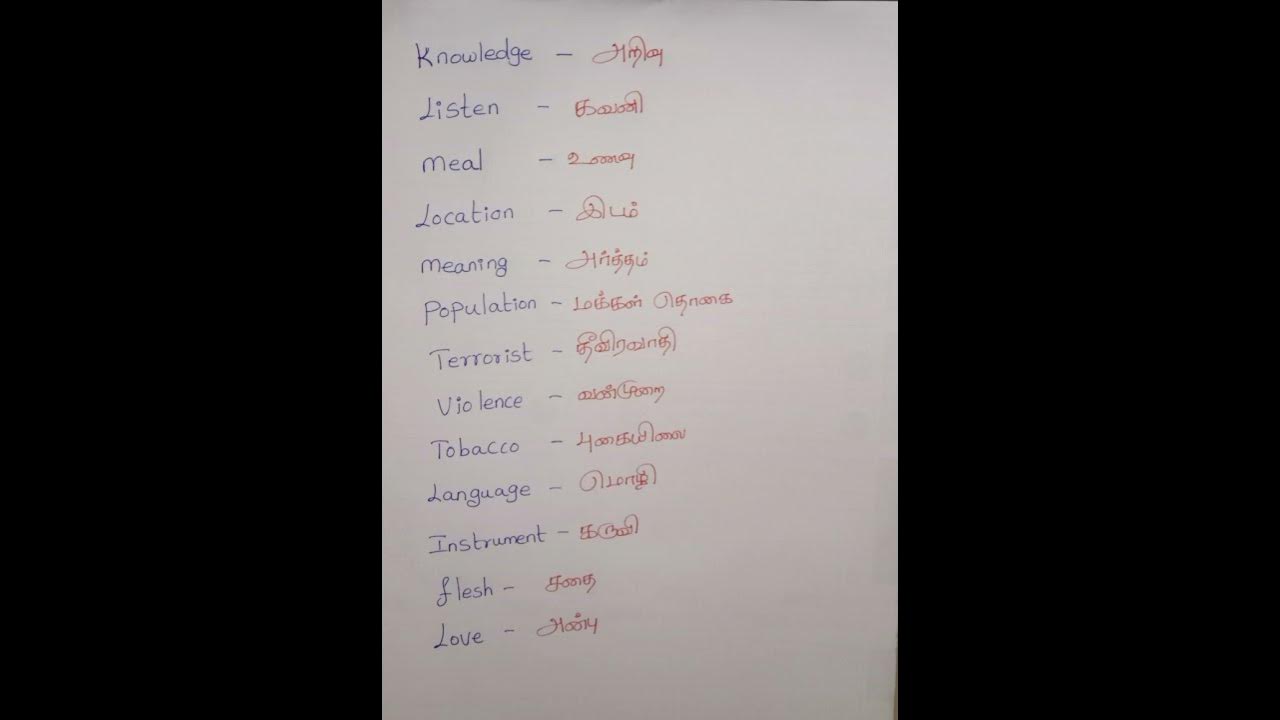 Knowledge - அறிவு
Listen - கவனி
Meal - உணவு
Location - இடம்
Meaning - அர்த்தம்
Population - மக்கள் தொகை
Terrorist - தீவிரவாதி
Violence - வன்முறை
Tobacco - புகையிலை
Language - மொழி
Instrument - கருவி
flesh - சதை
Love - அன்பு